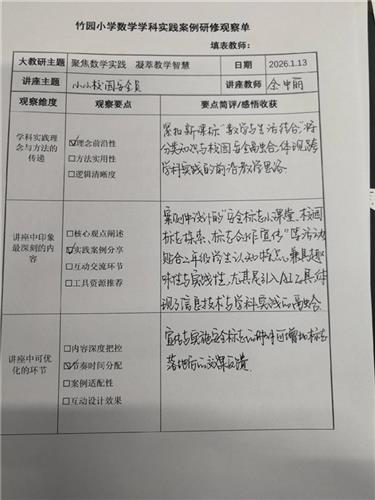 竹园小学数学学科实践案例研修观察单
填表教师：
大教研主题 聚焦数学实践 凝萃教学智慧 日期 2026.1.13
讲座主题 小小校园安全员 讲座教师 余中丽
观察维度 观察要点 要点简评/感悟收获
学科实践理念与方法的传递
☑理念前沿性
☐方法实用性
☐逻辑清晰度
紧扣新课标“数学与生活结合”将
分类知识与校园安全融合，体现跨
学科实践的前沿教学思路
讲座中印象最深刻的内容
☐核心观点阐述
☑实践案例分享
☐互动交流环节
☐工具资源推荐
案例中设计的“安全标志小课堂、校园
标志探索、标志合作宣传”等活动
贴合二年级学生认知特点，兼具趣
味性与实践性，尤其是引入AI工具，体
现了信息技术与学科实践的融合。
讲座中可优化的环节
☐内容深度把控
☑节奏时间分配
☐案例适配性
☐互动设计效果
宣传与实施安全标志的环节可增加标志
落地后的效果反馈